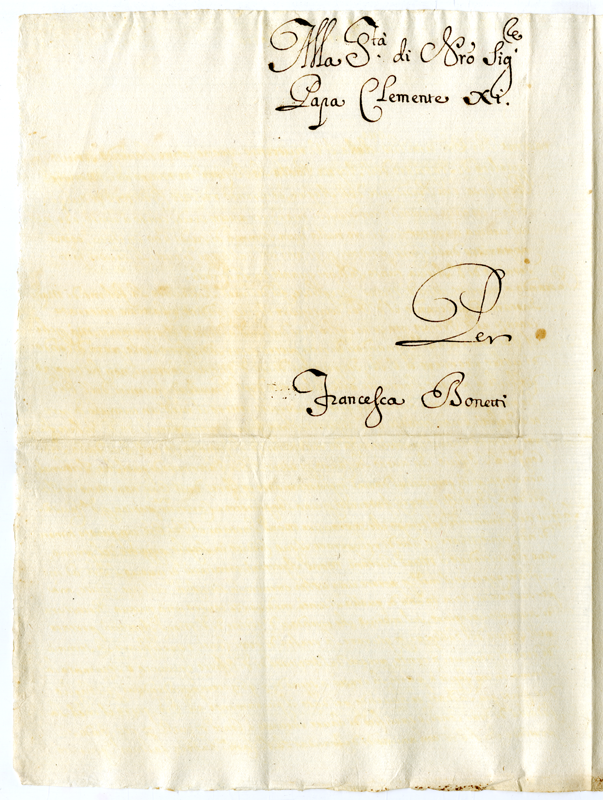 Alla S.tà di Nrõ Sig.re
Papa Clemente XI.
Per
Francesca Bonetti